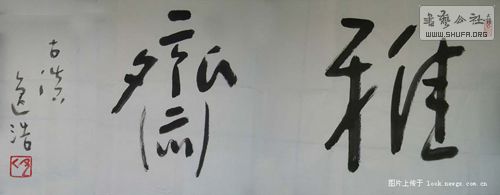 雅齋
古滇
逸浩
書藝公社
WWW.SHUFA.ORG
图片上传于 look.newgx.com.cn